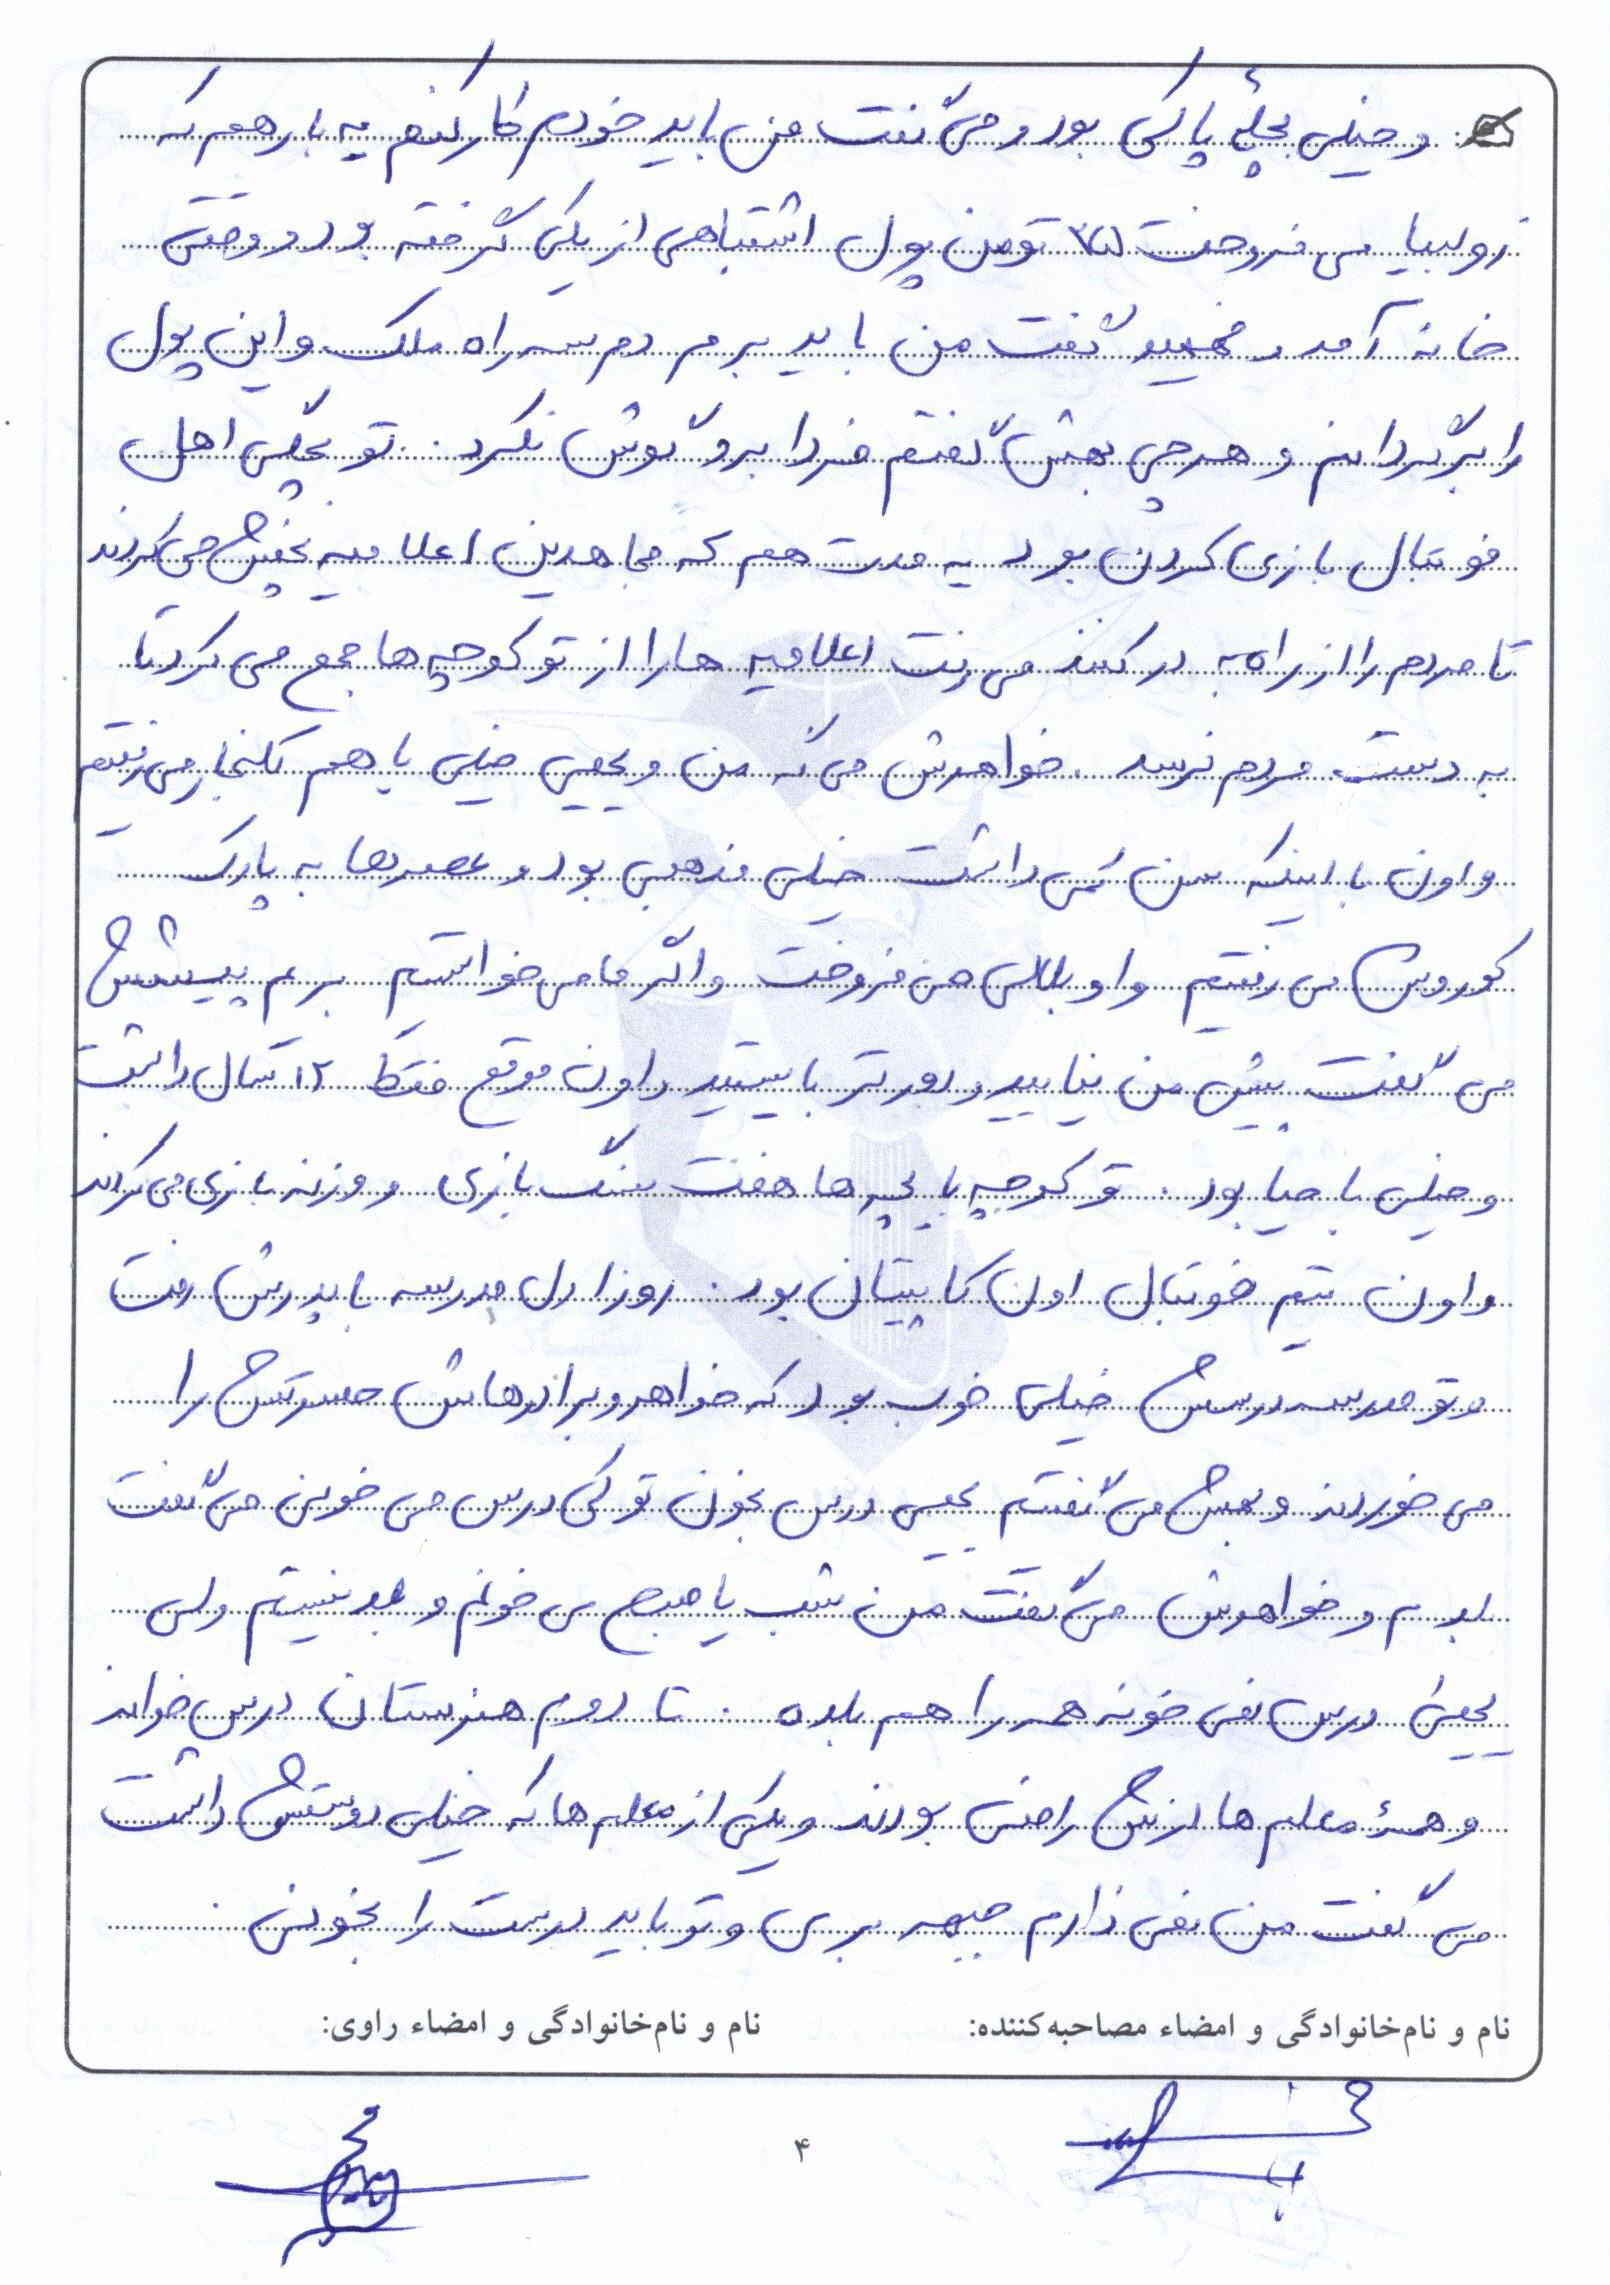 و خیلی بچهٔ پاکی بود و می گفت من باید خودم کار کنم یه بار هم که
زولبیا می فروخت ۷۵ تومن پول اشتباهی از یکی گرفته بود و وقتی
خانه آمد و فهمید گفت من باید برم دم سه راه ملک و این پول
را برگردانم و هرچی بهش گفتم فردا برو گوش نکرد. تو بچگی اهل
فوتبال بازی کردن بود یه مدت هم که مجاهدین اعلامیه پخش می کردند
تا مردم را از راه به در کنند می رفت اعلامیه ها را از تو کوچه ها جمع می کرد تا
به دست مردم نرسد. خواهرش می گه من و یحیی خیلی با هم کلنجار می رفتیم
و اون با اینکه سن کمی داشت خیلی مذهبی بود و عصرها به پارک
کوروش می رفتیم و او بلال می فروخت و اگر ما می خواستیم بریم پیشش
می گفت پیش من نیایید و دورتر بایستید و اون موقع فقط ۱۲ سال داشت
و خیلی با حیا بود. تو کوچه با بچه ها هفت سنگ بازی و وزنه بازی می کردند
و اون تیم فوتبال اون کاپیتان بود. روز اول مدرسه با پدرش رفت
و تو مدرسه درسش خیلی خوب بود که خواهر و برادرهاش حسرتش را
می خوردند و بهش می گفتم یحیی درس بخون تو کی درس می خونی می گفت
بلدم و خواهرش می گفت من شب یا صبح می خونم و بلد نیستم ولی
یحیی درس نمی خونه همه را هم بلده. تا دوم هنرستان درس خواند
و همهٔ معلم ها ازش راضی بودند و یکی از معلم ها که خیلی دوستش داشت
می گفت من نمی ذارم جبهه بری و تو باید درست را بخونی.
نام و نام‌خانوادگی و امضاء مصاحبه‌کننده:
نام و نام‌خانوادگی و امضاء راوی:
۴